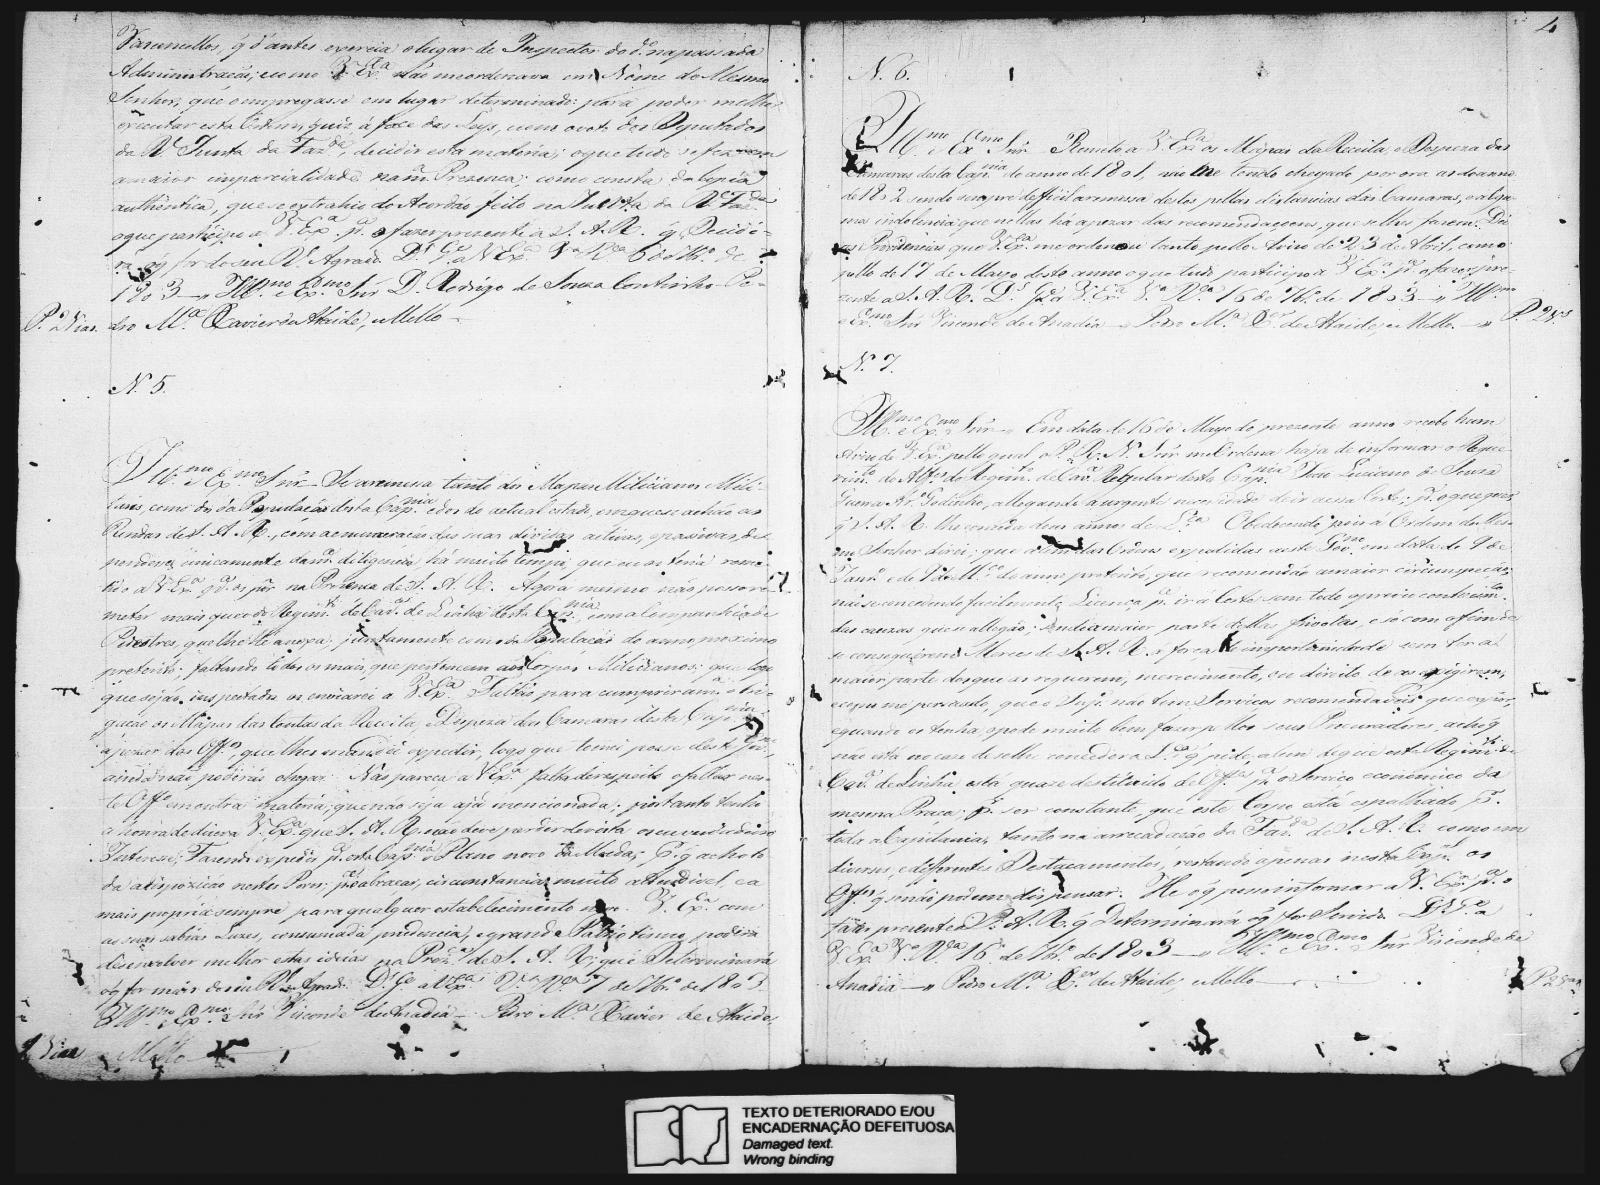 Vasconcellos, q̃ d'antes exercia o lugar de Inspector do d.º na passada
Administração; e como V. Ex.ª não me ordenava em Nome do Mesmo
Senhor, que o empregasse em lugar determinado: para poder melhor
executar esta Ordem, quiz á face das Leys, com o voto dos Deputados
da R. Junta da Faz.da, decidir esta materia; o que tudo se fez com
a maior imparcialidade na m.ª Prezença; como consta da Copia
authentica, que se extrahio do Acordão feito na Junta da R. Faz.da
o que participo a V. Ex.ª p.ª o fazer prezente a S. A. R. q̃ Decidi-
rá o q̃ for do seu R. Agrado. D.s G.e a V. Ex.ª V.ª R.ª 6 de 7br.º de
1803 — Ill.mo e Ex.mo Snr̃ D. Rodrigo de Souza Coutinho — Pe-
P. 2 Vias. dro M.ª Xavier de Ataide, e Mello —
N. 5.
Ill.mo e Ex.mo Snr̃ — Se a remessa tanto dos Mapas Milicianos, e Mili-
tares, como os da População desta Cap.nia e dos do actual estado, em que se achão as
Rendas de S. A. R., com a enumeração das suas dividas activas, e passivas, de-
pendesse unicamente da m.ª diligencia, há muito tempo, que eu os teria reme-
tido a V. Ex.ª p.ª os pôr na Prezença de S. A. R. Agora mesmo não posso re-
meter mais que o do Regim.to de Cav.ª de Linha desta Cap.nia, com a Companhia de
Pedestres, que lhe he anexa; juntamente com o da População do anno proximo
preterito; faltando todos os mais, que pertencem aos Corpos Milicianos: que logo
que sejão inspectados os enviarei a V. Ex.ª Faltão para cumprir a m.ª obri-
gação os Mapas das contas da Receita, e Despeza das Camaras desta Cap.nia
apezar dos Off.os que lhes mandei expedir, logo que tomei posse deste Gov.no,
ainda não poderão chegar. Não pareça a V. Ex.ª falta de respeito o fallar nes-
te Off.º em outra materia, que não seja a já mencionada; por tanto tenho
a honra de dizer a V. Ex.ª que S. A. R. não deve perder de vista os seus verdadeiros
Interesses; Fazendo expedir p.ª esta Cap.nia o Plano novo da Moeda; P. q̃ acho to-
da a dispozição nestes Povos p.ª o abraçar, circunstancia muito attendivel, e a
mais propria sempre para qualquer estabelecimento novo. V. Ex.ª com
as suas sabias Luzes, consumada prudencia, e grande Patriotismo, poderá
desenvolver melhor estas ideias na Prez.ª de S. A. R., que Determinará
o q̃ for mais do seu R. Agrado. D.s G.e a V. Ex.ª V.ª R.ª 7 de 7br.º de 1803.
Ill.mo e Ex.mo Snr̃ Visconde de Anadia — Pedro M.ª Xavier de Ataide,
2 Vias e Mello —
4
N. 6.
Ill.mo e Ex.mo Snr̃ — Remeto a V. Ex.ª os Mapas da Receita, e Despeza das
Camaras desta Cap.nia do anno de 1801, não me tendo chegado por ora as do anno
de 1802 sendo sempre deficil a remessa destes pellas distancias das Camaras, e algu-
mas indolencia que nellas há apezar das recomendaçoens, que se lhes fazem. Dei
as Providencias, que V. Ex.ª me ordenou tanto pello Avizo de 23 de Abril, como
pello de 17 de Março deste anno o que tudo participo a V. Ex.ª p.ª o fazer pre-
zente a S. A. R. D.s G.e a V. Ex.ª V.ª R.ª 16 de 7br.º de 1803 — Ill.mo
e Ex.mo Snr̃ Visconde de Anadia — Pedro M.ª X.er de Ataide, e Mello. — P. 2 V.s
N. 7.
Ill.mo e Ex.mo Snr̃ — Em data de 16 de Março do prezente anno recebi hum
Avizo de V. Ex.ª pello qual o P. R. N. Snr̃ me Ordena haja de informar o Reque-
rim.to do Alf.es do Regim.to de Cav.ª Regular desta Cap.nia João Luciano de Souza
Guerra Ar.º Godinho, allegando a urgente necessidade de ir a essa Corte; p.ª o que pede
q̃ S. A. R. lhe conceda dous annos de L.ça Obedecendo pois á Ordem do Mes-
mo Senhor direi; que as muitas Ordens expedidas a este Gov.no em data de 9 de
Jan.º e de 9 de M.ço do anno preterito, que recomendão a maior circunspecção
não se concedendo facilmente Licença p.ª ir á Corte sem todo o previo conhecim.to
das cauzas que se allegão; sendo a maior parte dellas frivolas, e só com o fim de
se conseguirem Merces de S. A. R. á força de importunidade sem ter a
maior parte dos que as requerem, merecimento, ou direito de as exigirem,
e como me persuado, que o Sup.e não tem Serviços recomendaveis que expor,
e quando os tenha, o pode muito bem fazer pellos seus Procuradores, acho q̃
não está no caso de se lhe conceder a L.ça q̃ pede, alem de que este Regim.to de
Cav.ª de Linha, está quaze destituido de Off.es p.ª o serviço economico da
mesma Praça; p.r ser constante, que este Corpo está espalhado p.r
toda a Capitania, tanto na arrecadação da Faz.da de S. A. R. como em
diversos, e differentes Destacamentos, restando apenas nesta Cap.al os
Off.es q̃ se não podem dispensar. He o q̃ posso informar a V. Ex.ª p.ª o
fazer prezente a S. A. R. q̃ Determinará o q̃ for Servido. D.s G.e a
V. Ex.ª V.ª R.ª 16 de 7br.º de 1803 — Ill.mo e Ex.mo Snr̃ Visconde de
Anadia — Pedro M.ª X.er de Ataide, e Mello — P. 2 Vias
TEXTO DETERIORADO E/OU
ENCADERNAÇÃO DEFEITUOSA
Damaged text.
Wrong binding